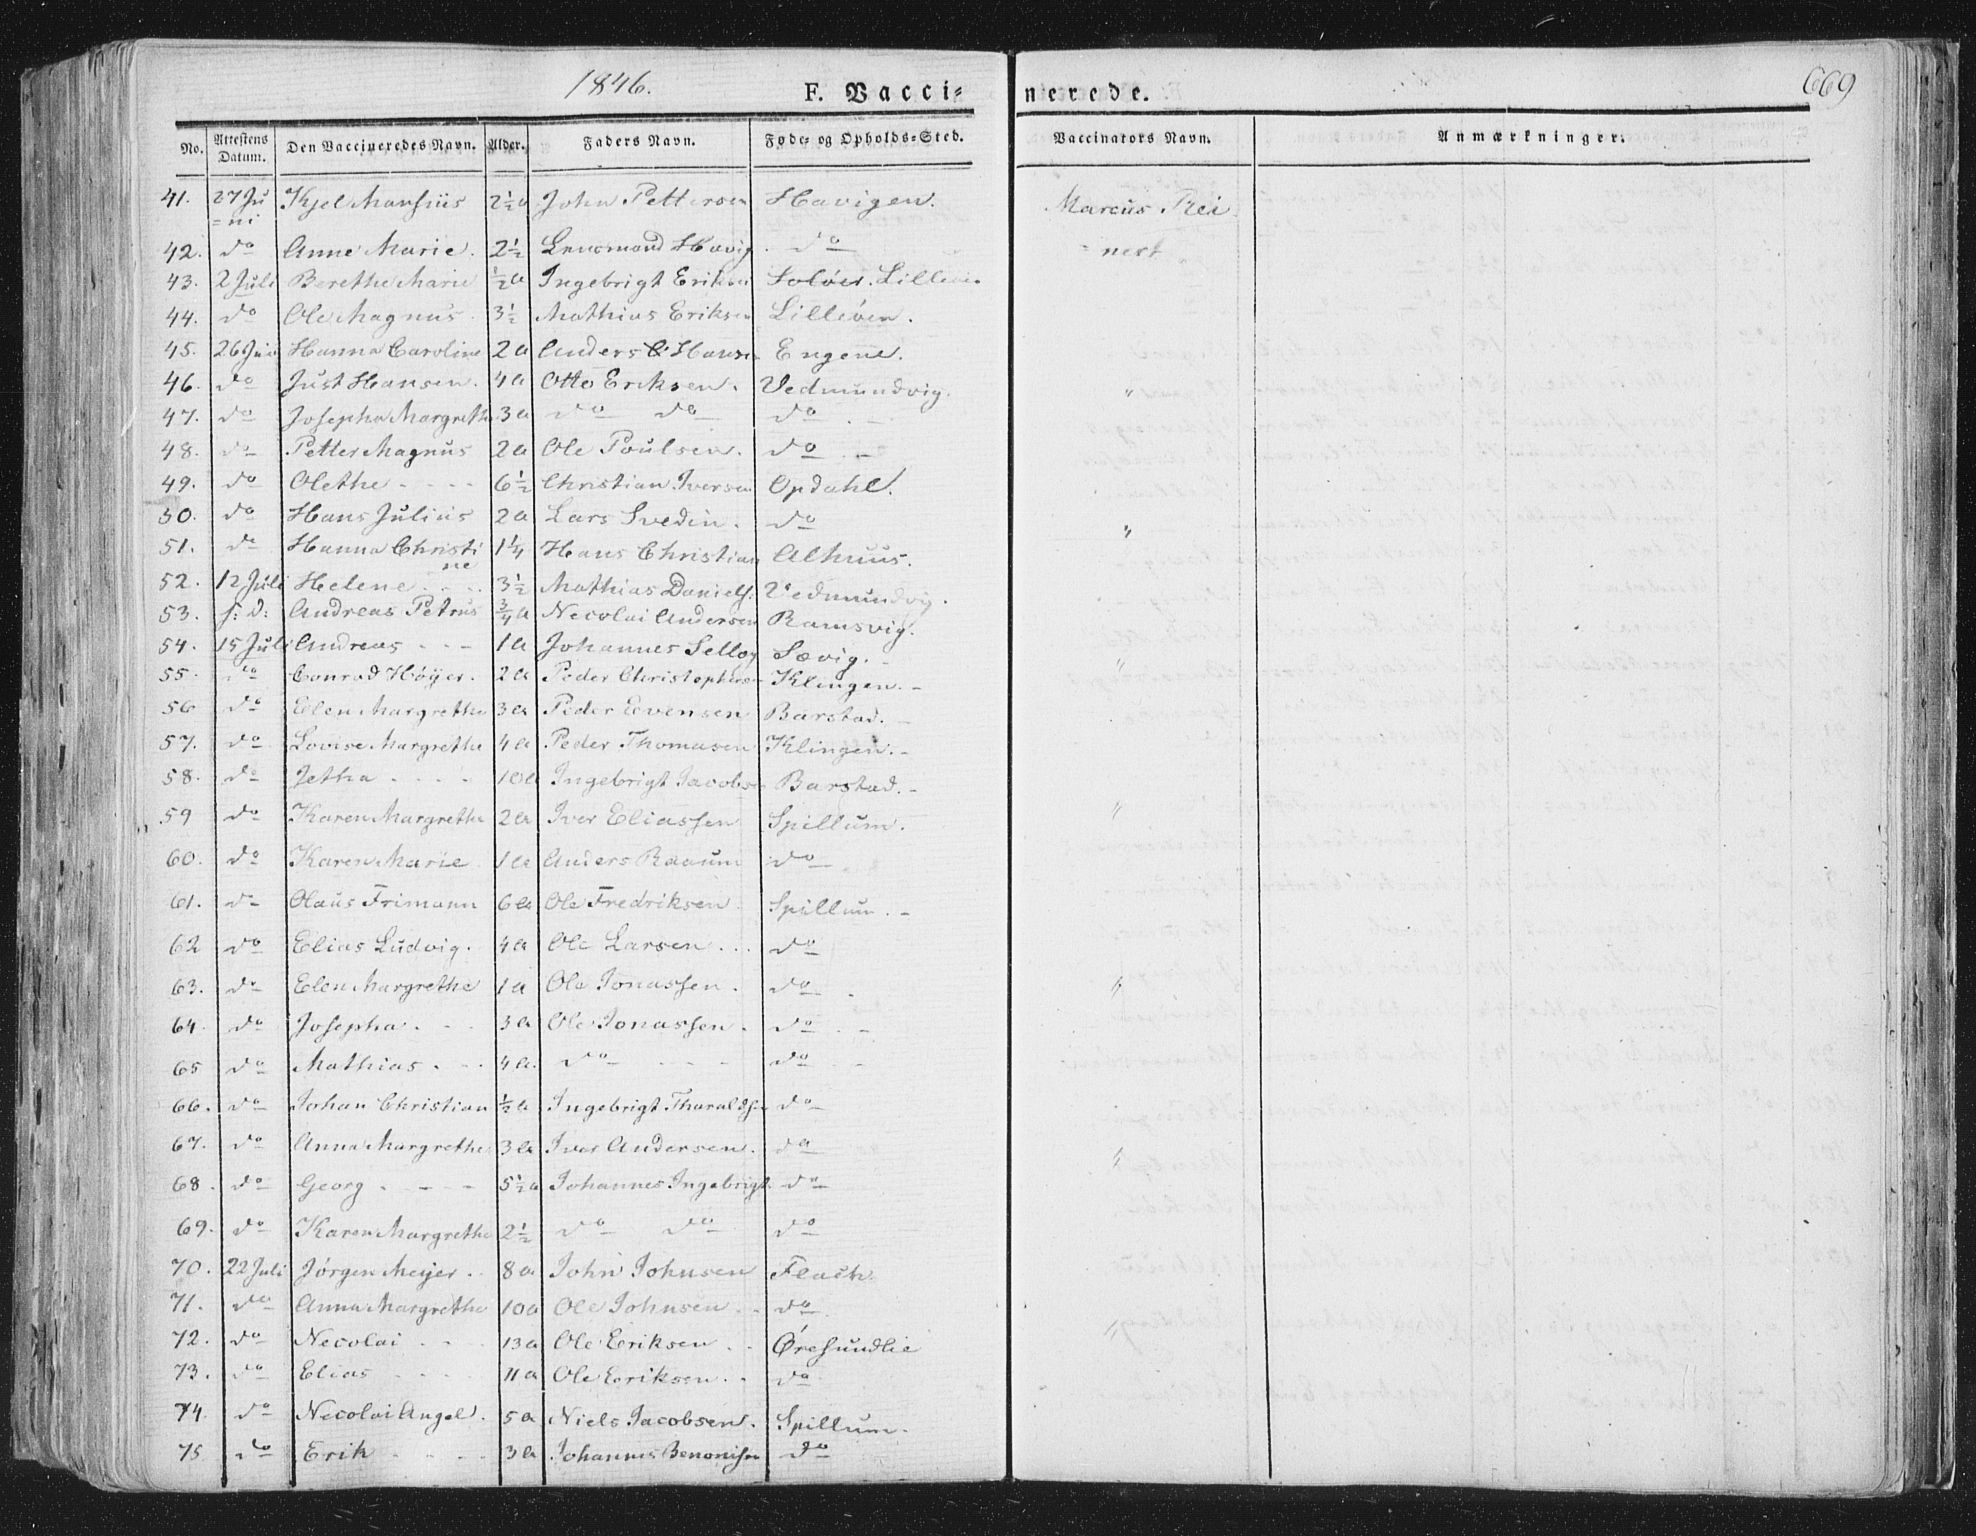 1846. F. Vacci= nerede. 669
No. Attestens Datum. Den Vaccineredes Navn. Alder. Faders Navn. Føde- og Opholds-Sted. Vaccinators Navn. Anmærkninger.
41. 27 Ju Kjel Mansiüs 2½ a John Pettersen Havigen. Marcus Trei
=ni
42. do Anne Marie. 2½ Lensmand Havig do = nest
43. 2 Juli Berethe Marie ½ a Ingebrigt Eriksen Soløer. Lilleøen
44. do Ole Magnus 3½ Mathias Eriksen Lilleöen.
45. 26 Juni Hanna Caroline 2 a Anders C Hansen Engene.
46. do Just Hansen. 4 a Otto Eriksen. Vedmundvig. "
47. do Josepha Margrethe 3 a do do do
48. do Petter Magnus 2 a Ole Poulsen. do
49. do Olethe 6½ Christian Iversen Opdahl.
50. do Hans Julius 2 a Lars Svedin. do "
51. do Hanna Christi 1¼ Hans Christian Alhuus.
ne
52. 12 Juli Helene 3½ Mathias Daniels. Vedmundvig.
53. s: d: Andreas Petrus ¾ a Necolai Andersen Ramsvig.
54. 15 Juli Andreas 1 a Johannes Selløy Sævig.
55. do Conrad Höyer. 2 a Peder Christophersen Klingen. "
56 do Elen Margrethe 3 a Peder Evensen Barstad.
57. do Lovise Margrethe 4 a Peder Thomasen Klingen.
58. do Jetha 10 a Ingebrigt Jacobsen Barstad.
59 do Karen Margrethe 2 a Iver Eliassen Spillum. "
60. do Karen Marie 1 a Anders Raaum do
61. do Olaus Frimann 6 a Ole Fredriksen Spillum.
62 do Elias Ludvig. 4 a Ole Larsen do
63. do Elen Margrethe 1 a Ole Jonassen. do "
64. do Josepha. 3 a Ole Jonassen. do
65 do Mathias. 4 a. do do
66. do Johan Christian ½ a Ingebrigt Tharaldsen do
67. do Anna Margrethe 3 a Iver Andersen. do "
68. do Georg 5½ a Johannes Ingebrigt. do
69. do Karen Margrethe 2½ do do do
70. 22 Juli Jörgen Meyer. 8 a John Johnsen Flach
71. do Anna Margrethe 10 a Ole Johnsen do
72. do Necolai 13 a Ole Eriksen Øresundlie "
73. do Elias 11 a Ole Eriksen do
74. do Necolai Angel. 5 a Niels Jacobsen. Spillum.
75 do Erik 3 a Johannes Benonisen do